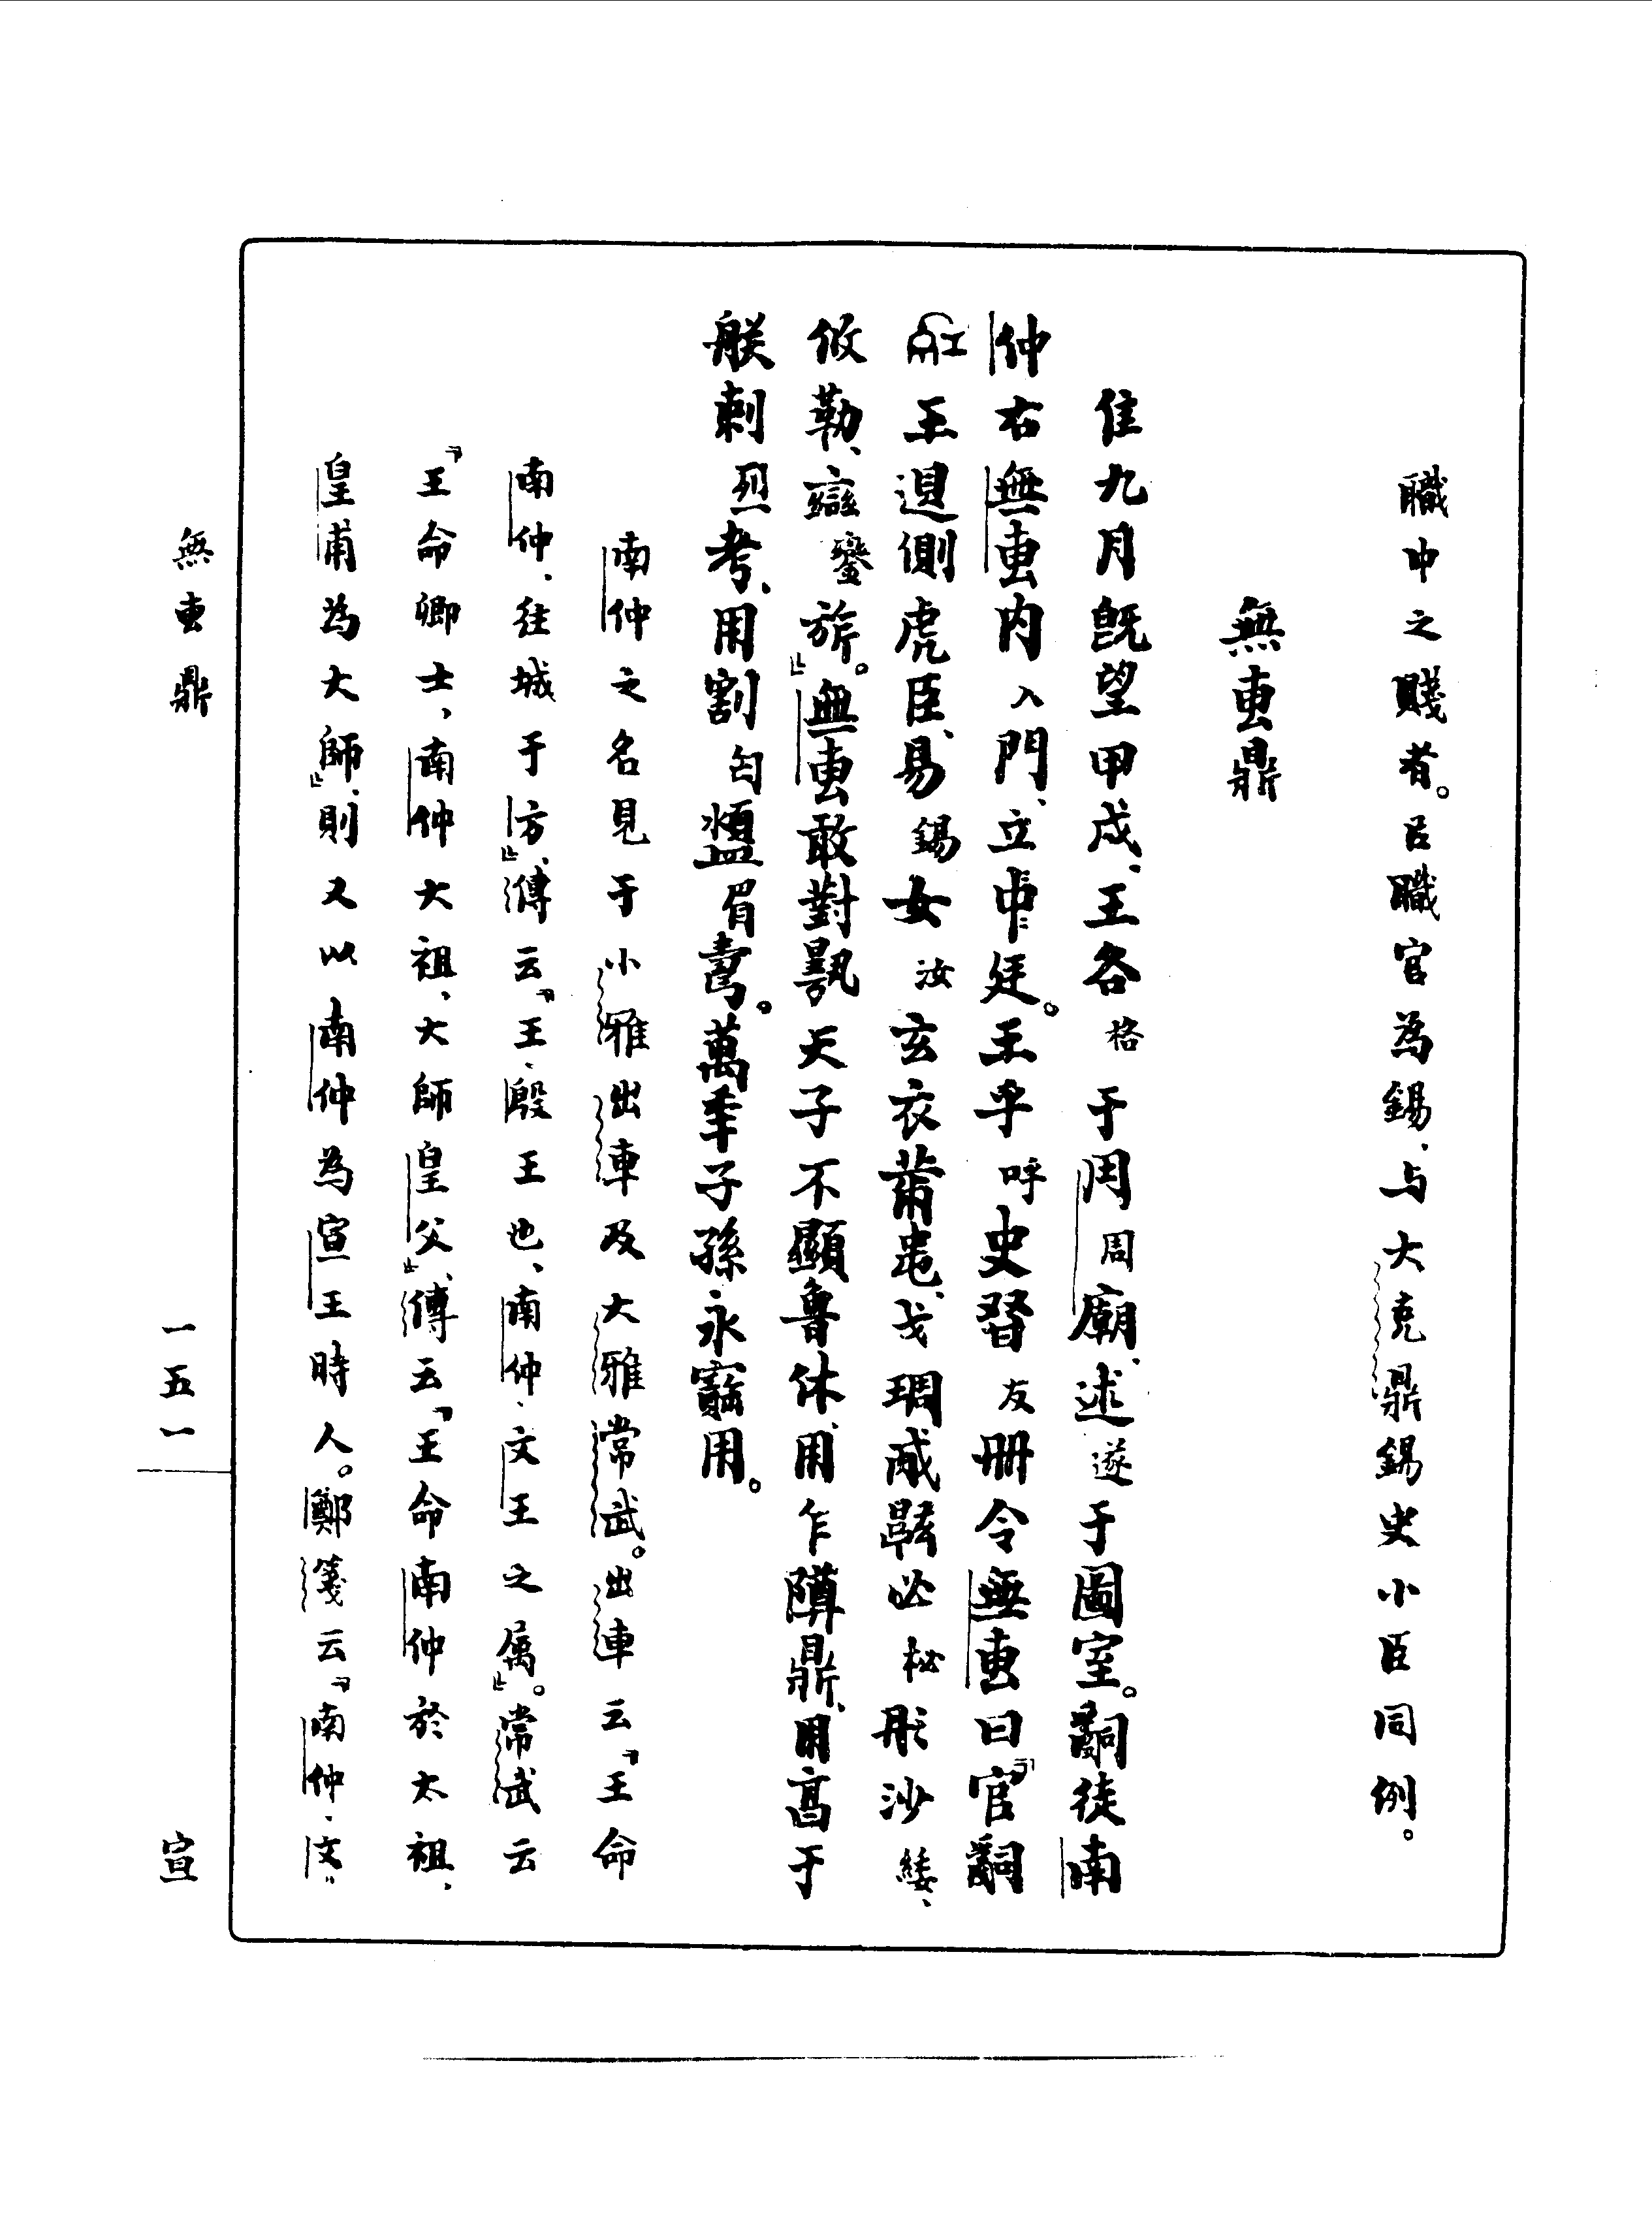 職中之賤者。㠯職官為錫、与大克鼎錫史小臣同例。
無叀鼎
隹九月既望甲戌、王各格于周廟、述遂于圖室。嗣徒南
仲右無叀內入門、立中廷。王乎呼史友冊令無叀曰「官嗣
王側虎臣、易錫女汝玄衣黹屯、戈琱㦸必柲彤沙緌、
攸勒、䜌鑾旂。」無叀敢對天子不顯魯休、用乍鼎、用亯于
朕剌烈考、用割匄眉壽。萬年子孫永寶用。
南仲之名見于小雅出車及大雅常武。出車云「王命
南仲、往城于方」、傳云「王、殷王也、南仲、文王之属」。常武云
「王命卿士、南仲大祖、大師皇父」、傳云「王命南仲於太祖、
皇甫為大師」、則又以南仲為宣王時人。鄭箋云「南仲、文
無叀鼎
一五一
宣